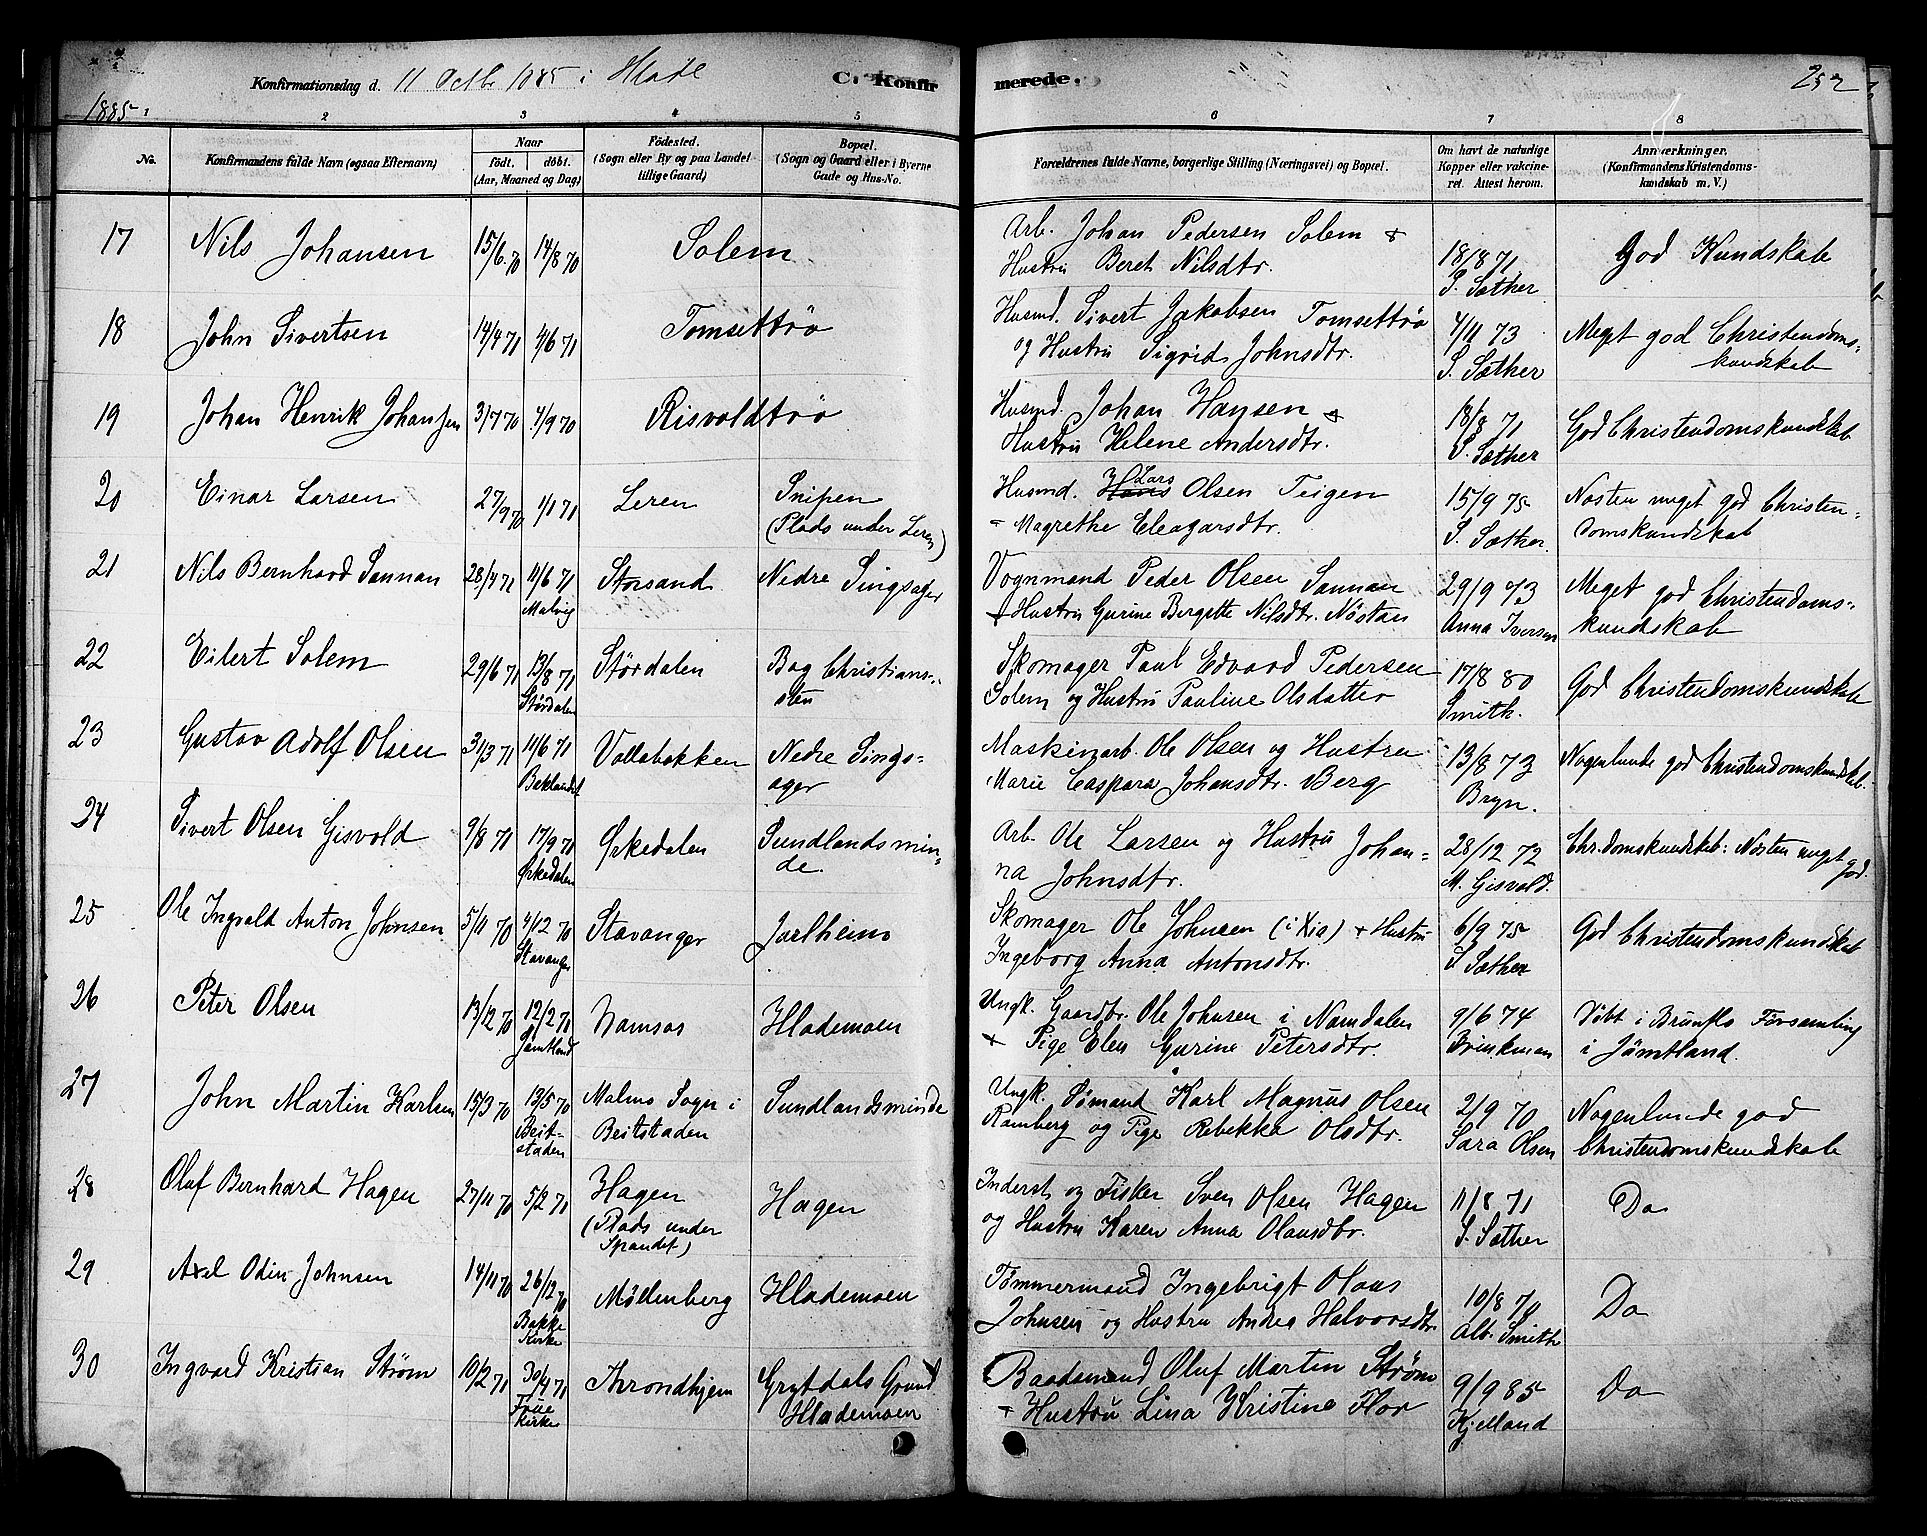 Konfirmationsdag d. 11 Octb 1885 i Hlade C. Konfir merede. 252
1885
1 2 3 4 5 6 7 8
No. Konfirmandens fulde Navn (ogsaa Efternavn) Naar født. døbt. (Aar, Maaned og Dag) Fødested. (Sogn eller By og paa Landet tillige Gaard) Bopæl. (Sogn og Gaard eller i Byerne Gade og Hus-No. Forældrenes fulde Navne, borgerlige Stilling (Næringsvei) og Bopæl. Om havt de naturlige Kopper eller vakcineret. Attest herom. Anmærkninger. (Konfirmandens Kristendomskundskab m. V.)
17 Nils Johansen 15/6 70 14/8 70 Solem Arb. Johan Pedersen Solem + 18/8 71 God Kundskab
Hustru Beret Nilsdtr. S. Sæther
18 John Sivertsen 14/4 71 4/6 71 Tomsettrø Husmd. Sivert Jakobsen Tomsettrø 4/11 73 Meget god Christendoms-
og Hustru Sigrid Johnsdtr. S. Sæther kundskab
19 Johan Henrik Johansen 31/7 70 4/9 70 Risvoldtrø Husmd. Johan Hansen + 18/8 71 God Christendomskundskab
Hustru Helene Andersdtr. S. Sæther
20 Einar Larsen 27/9 70 1/1 71 Leren Snipen Husmd. Hans Lars Olsen Teigen 15/9 75 Næsten meget god Christen-
(Plads under Leren) + Magrethe Eleazarsdtr. S. Sæther. domskundskab
21 Nils Bernhard Sannan 28/4 71 11/6 71 Storsand Nedre Singsager Vognmand Peder Olsen Sannan 29/9 73 Meget god Christendoms-
Malvig + Hustru Gurine Bergitte Nilsdtr. Nøstan Anna Iversen kundskab
22 Eilert Solem 29/6 71 13/8 71 Størdalen Bag Christians- Skomager Paul Edvard Pedersen 17/8 80 God Christendomskundskab
Størdalen sten Solem og Hustru Pauline Olsdatter Smith.
23 Gustav Adolf Olsen 31/3 71 11/6 71 Vollabakken Nedre Sings- Maskinarb. Ole Olsen og Hustru 13/8 73 Nogenlunde god Christendomskundskab.
Baklandet ager Marie Caspara Johansdtr. Berg Bryn.
24 Sivert Olsen Gisvold 9/8 71 17/9 71 Ørkedalen Sundlandsmin- Arb. Ole Larsen og Hustru Johan- 28/12 72 Chr.domskundskab: Næsten meget god.
Ørkedalen de. na Johnsdtr. M. Gisvold.
25 Ole Ingvald Anton Johnsen 5/11 70 4/12 70 Stavanger Jarlheim Skomager Ole Johnsen (i Xia) + Hustru 6/9 75 God Christendomskundskab
Stavanger Ingeborg Anna Antonsdtr. S Sæther
26 Peter Olsen 13/12 70 12/2 70 Namsos Hlademoen Ungk. Gaardbr. Ole Johnsen i Namdalen 9/6 74 Døbt i Brunflo Forsamling
Jämtland + Pige Elen Gurine Petersdtr. Brinkman i Jämtland.
27 John Martin Karlsen 15/3 70 13/5 70 Malmo Sogn i Sundlandsminde Ungk. Sømand Karl Magnus Olsen 2/9 70 Nogenlunde god
Beit-staden Beitstaden Ramberg og Pige Rebekka Olsdtr. Sara Olsen Christendomskundskab
28 Oluf Bernhard Hagen 27/11 70 5/2 71 Hagen Hagen Inderst og Fisker Sven Olsen Hagen 11/8 71 Do
(Plads under Spandet) og Hustru Karen Anna Olausdtr. S. Sæther
29 Axel Odin Johnsen 14/11 70 26/12 70 Møllenberg Hlademoen Tømmermand Ingebrigt Olaus 10/8 74 Do
Bakke Kirke Johnsen og Hustru Andrea Halvorsdtr. Alb. Smith
30 Ingvard Kristian Strøm 10/2 71 30/4 71 Throndhjem Grytdals Grund Baadsmand Oluf Martin Strøm 9/9 85 Do
Frue Kirke Hlademoen + Hustru Lina Kristine Flor Kjelland